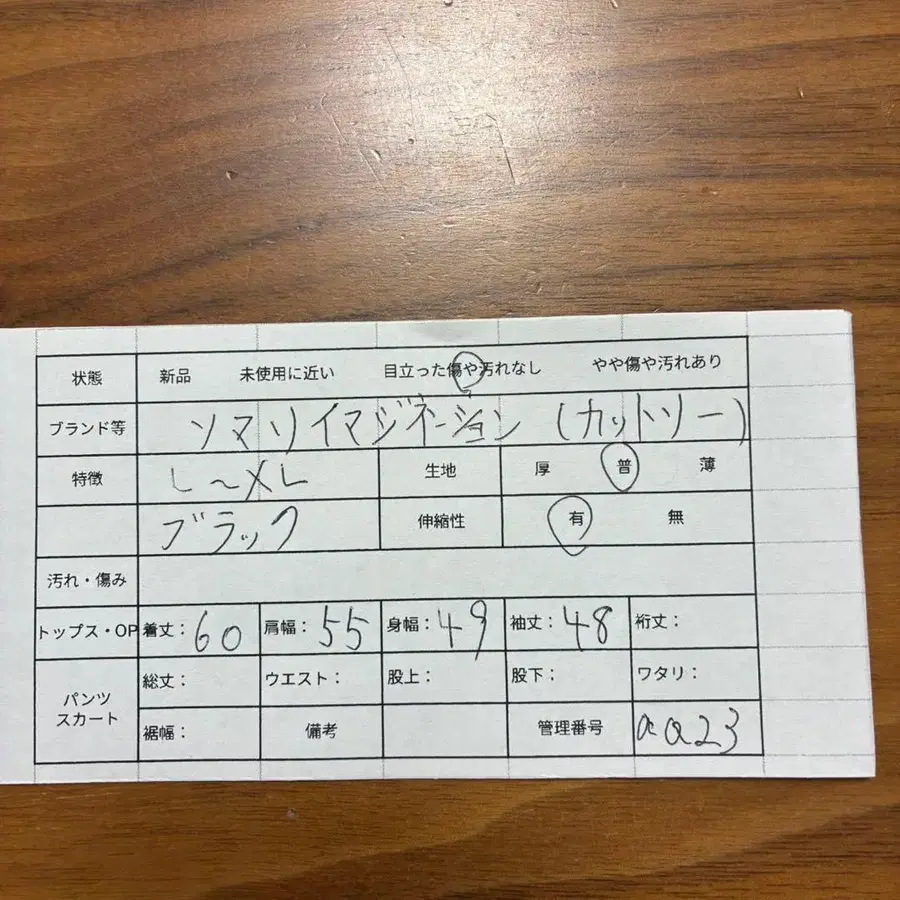 状態 新品 未使用に近い 目立った傷や汚れなし やや傷や汚れあり
ブランド等 ソマリイマジネーション (カットソー)
特徴 L〜XL 生地 厚 普 薄
ブラック 伸縮性 有 無
汚れ・傷み
トップス・OP 着丈: 60 肩幅: 55 身幅: 49 袖丈: 48 裄丈:
パンツ スカート 総丈: ウエスト: 股上: 股下: ワタリ:
裾幅: 備考 管理番号 aa23